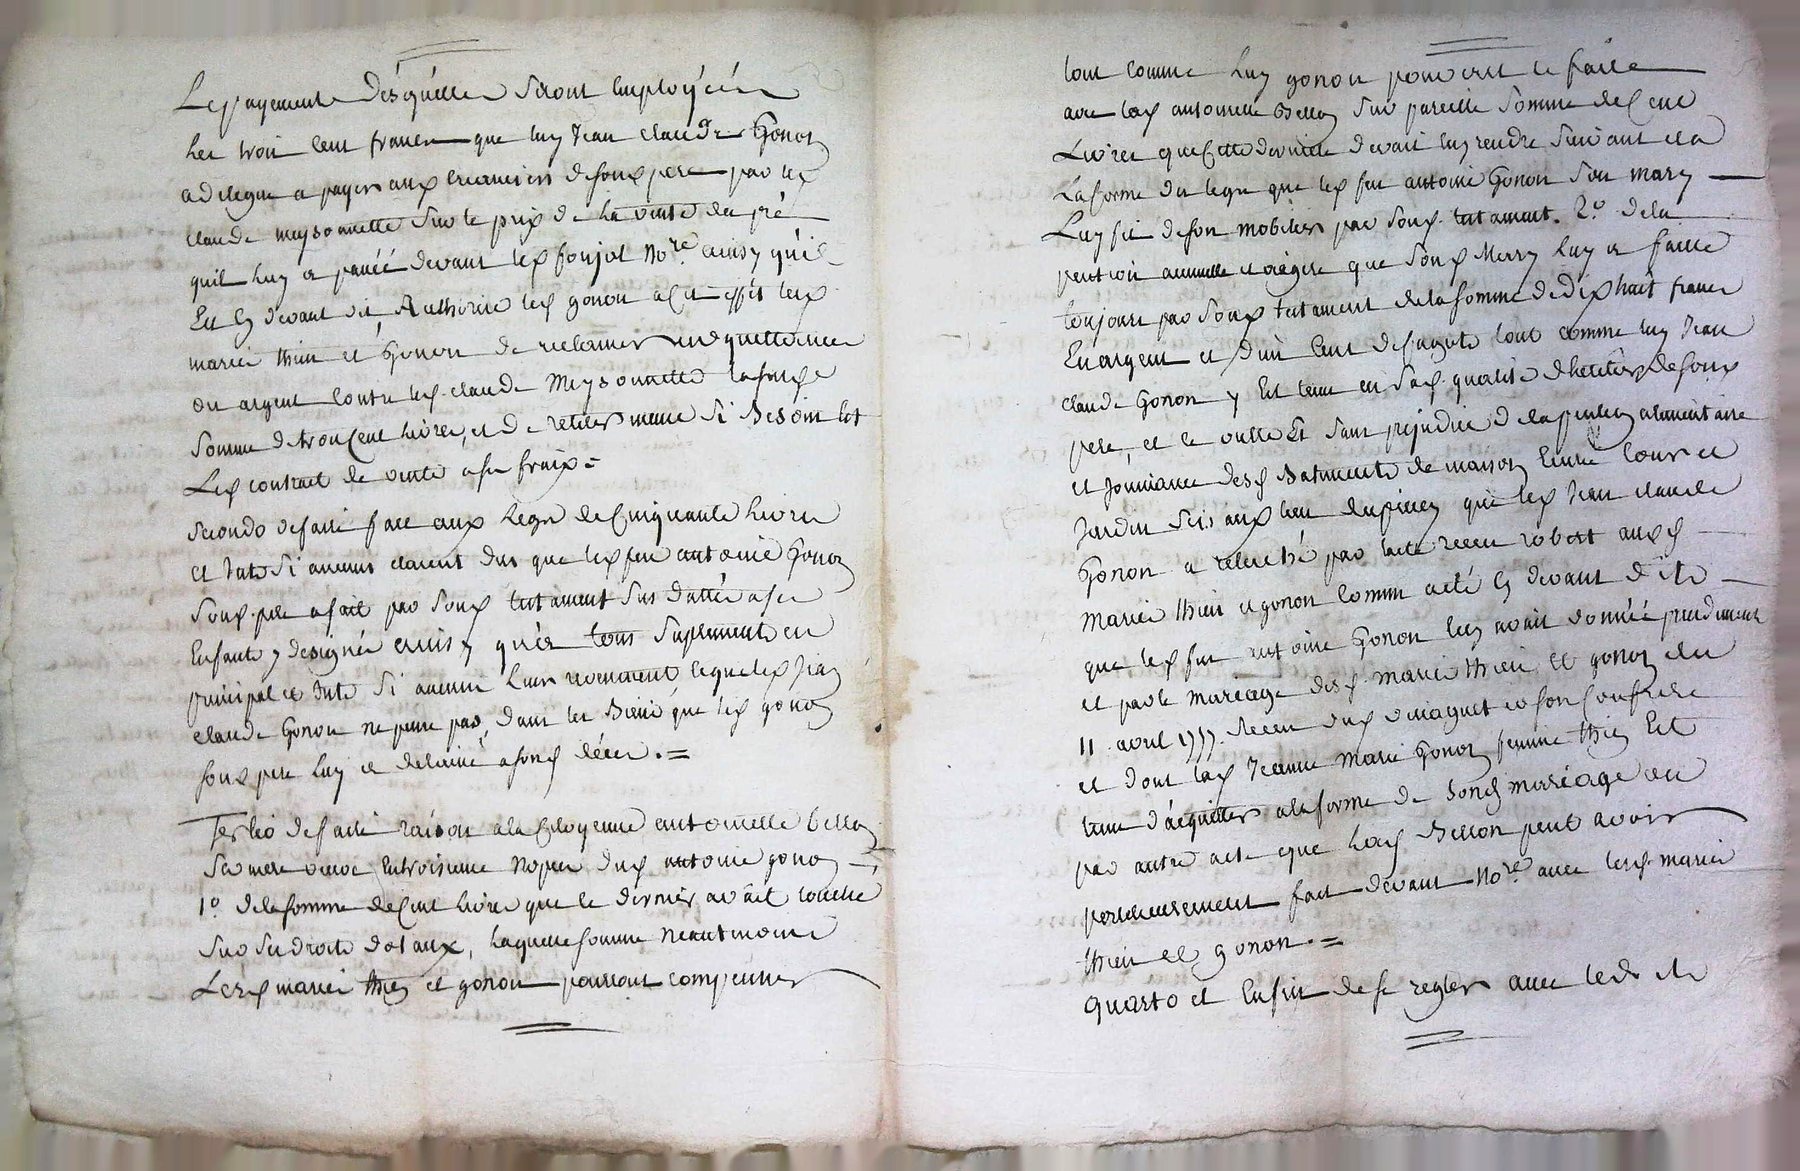 Le payement desquelles seront employées
les trois cent francs que luy Jean claude Gonon
a delegue a payer aux creanciers de sond pere par led
claude meysonnette sur le prix de la vente du pré
quil luy a passée devant led sonjol no.re ainsy quil
Est cy devant dit, Authorise led gonon a cet effet lesd
mariés thien et Gonon de reclamer en quittances
ou argent contre led. claude Meysonnette lasusd
somme de trois cent livres, et de retirer meme si Besoin Est
Led contract de vente a ses fraix =
secondo de faire face aux legs de Cinquante livres
et Intets si aucuns etoient dus que led feu antoine Gonon
sond. pere a fait par sond testament sus datté a ses
Enfants y designés ainsy qu'a tous suplements en
principal et Intets si aucuns leurs reviennent lequel led Jean
claude Gonon ne pense pas, dans les Biens que led gonon
sond pere luy a delaissé a sond décès. =
Tertio de faire raison a la Citoyenne antoinette bellon
sa mere veuve En troisieme nopces dud antoine gonon
1.° de la somme de Cent livres que le dernier avait touché
sur ses droits dotaux, laquelle somme neantmoins
Lesd mariés thien et gonon pourront compenser
tout comme luy gonon pouvait le faire
avec lad antoinette Bellon sur pareille somme de Cent
Livres que Cette derniere devait luy rendre suivant et a
La forme du legs que led feu antoine Gonon son mary
Luy fit de son mobilier par sond. testament. 2.° de la
pention annuelle et viagere que sond Marry luy a faitte
toujours par sond testament de la somme de dix huit francs
En argent et d'un cent de fagots tout comme luy Jean
claude Gonon y Est tenu en sad. qualité d'heritier de sond
pere, et le outre Et sans prejudice de la pention alimentaire
et Jouissance desd Batiments de maison Entre Cour et
Jardin sis aux lieu du que led Jean claude
Gonon a relaché par acte recu robert auxd
mariés thien et gonon comm acté cy devant dite
que led feu antoine Gonon luy avait donnée precedemment
et par le mariage desd. mariés thien et gonon du
11. avril 1777. recu dud et son Confrere
et dont lad Jeanne Marie Gonon femme thien Est
tenue d'acquitter a la forme de sond mariage ou
par autre acte que lad Bellon peut avoir
posterieurement fait devant No.re avec lesd. mariés
thien et gonon. =
Quarto et Enfin de se regler avec led. de